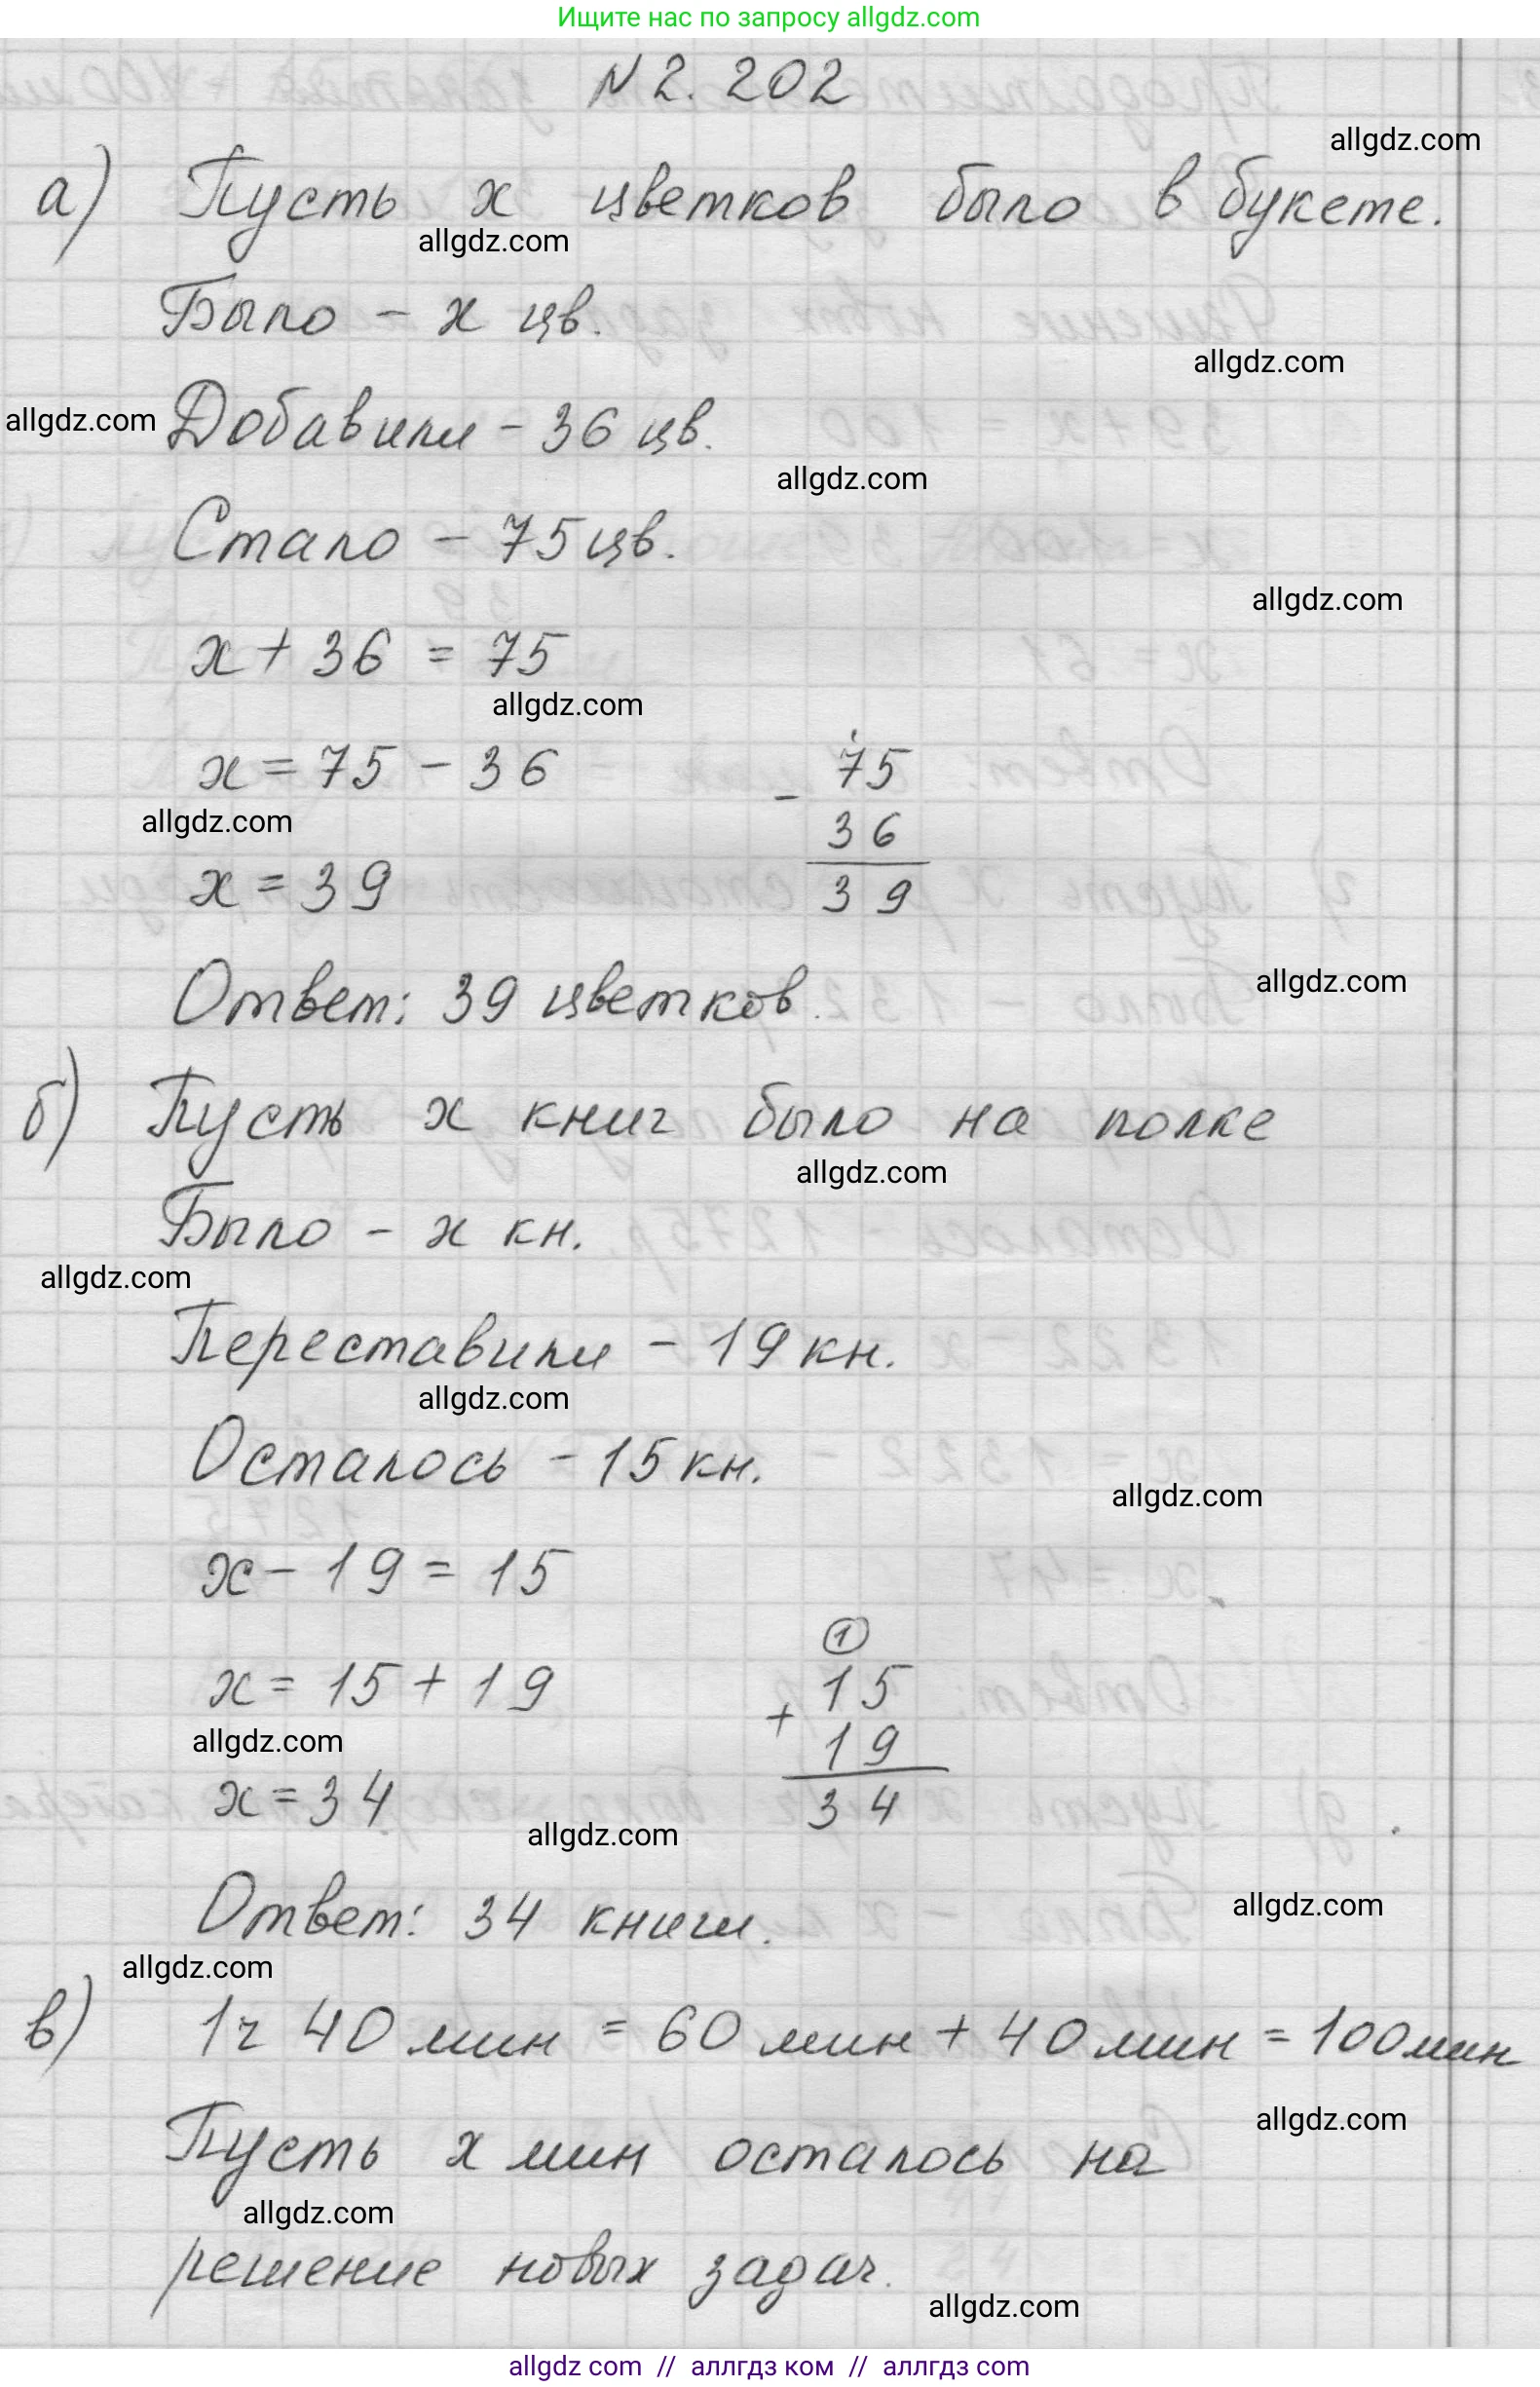 Ищите нас по запросу allgdz.com
N 2. 202
allgdz.com
а) Пусть x цветков было в букете.
allgdz.com
Было - x цв.
allgdz.com
allgdz.com Добавили - 36 цв.
allgdz.com
Стало - 75 цв.
allgdz.com
x + 36 = 75
allgdz.com
x = 75 - 36
75
-
allgdz.com
36
x = 39
39
allgdz.com
Ответ: 39 цветков.
б) Пусть x книг было на полке
allgdz.com
Было - x кн.
allgdz.com
Переставили - 19 кн.
allgdz.com
Осталось - 15 кн.
allgdz.com
x - 19 = 15
1
x = 15 + 19
15
+
allgdz.com
19
x = 34
34
allgdz.com
Ответ: 34 книги.
allgdz.com
allgdz.com
в) 1ч 40 мин = 60 мин + 40 мин = 100 мин
allgdz.com
Пусть x мин осталось на
allgdz.com
решение новых задач.
allgdz.com
allgdz com // аллгдз ком // аллгдз com